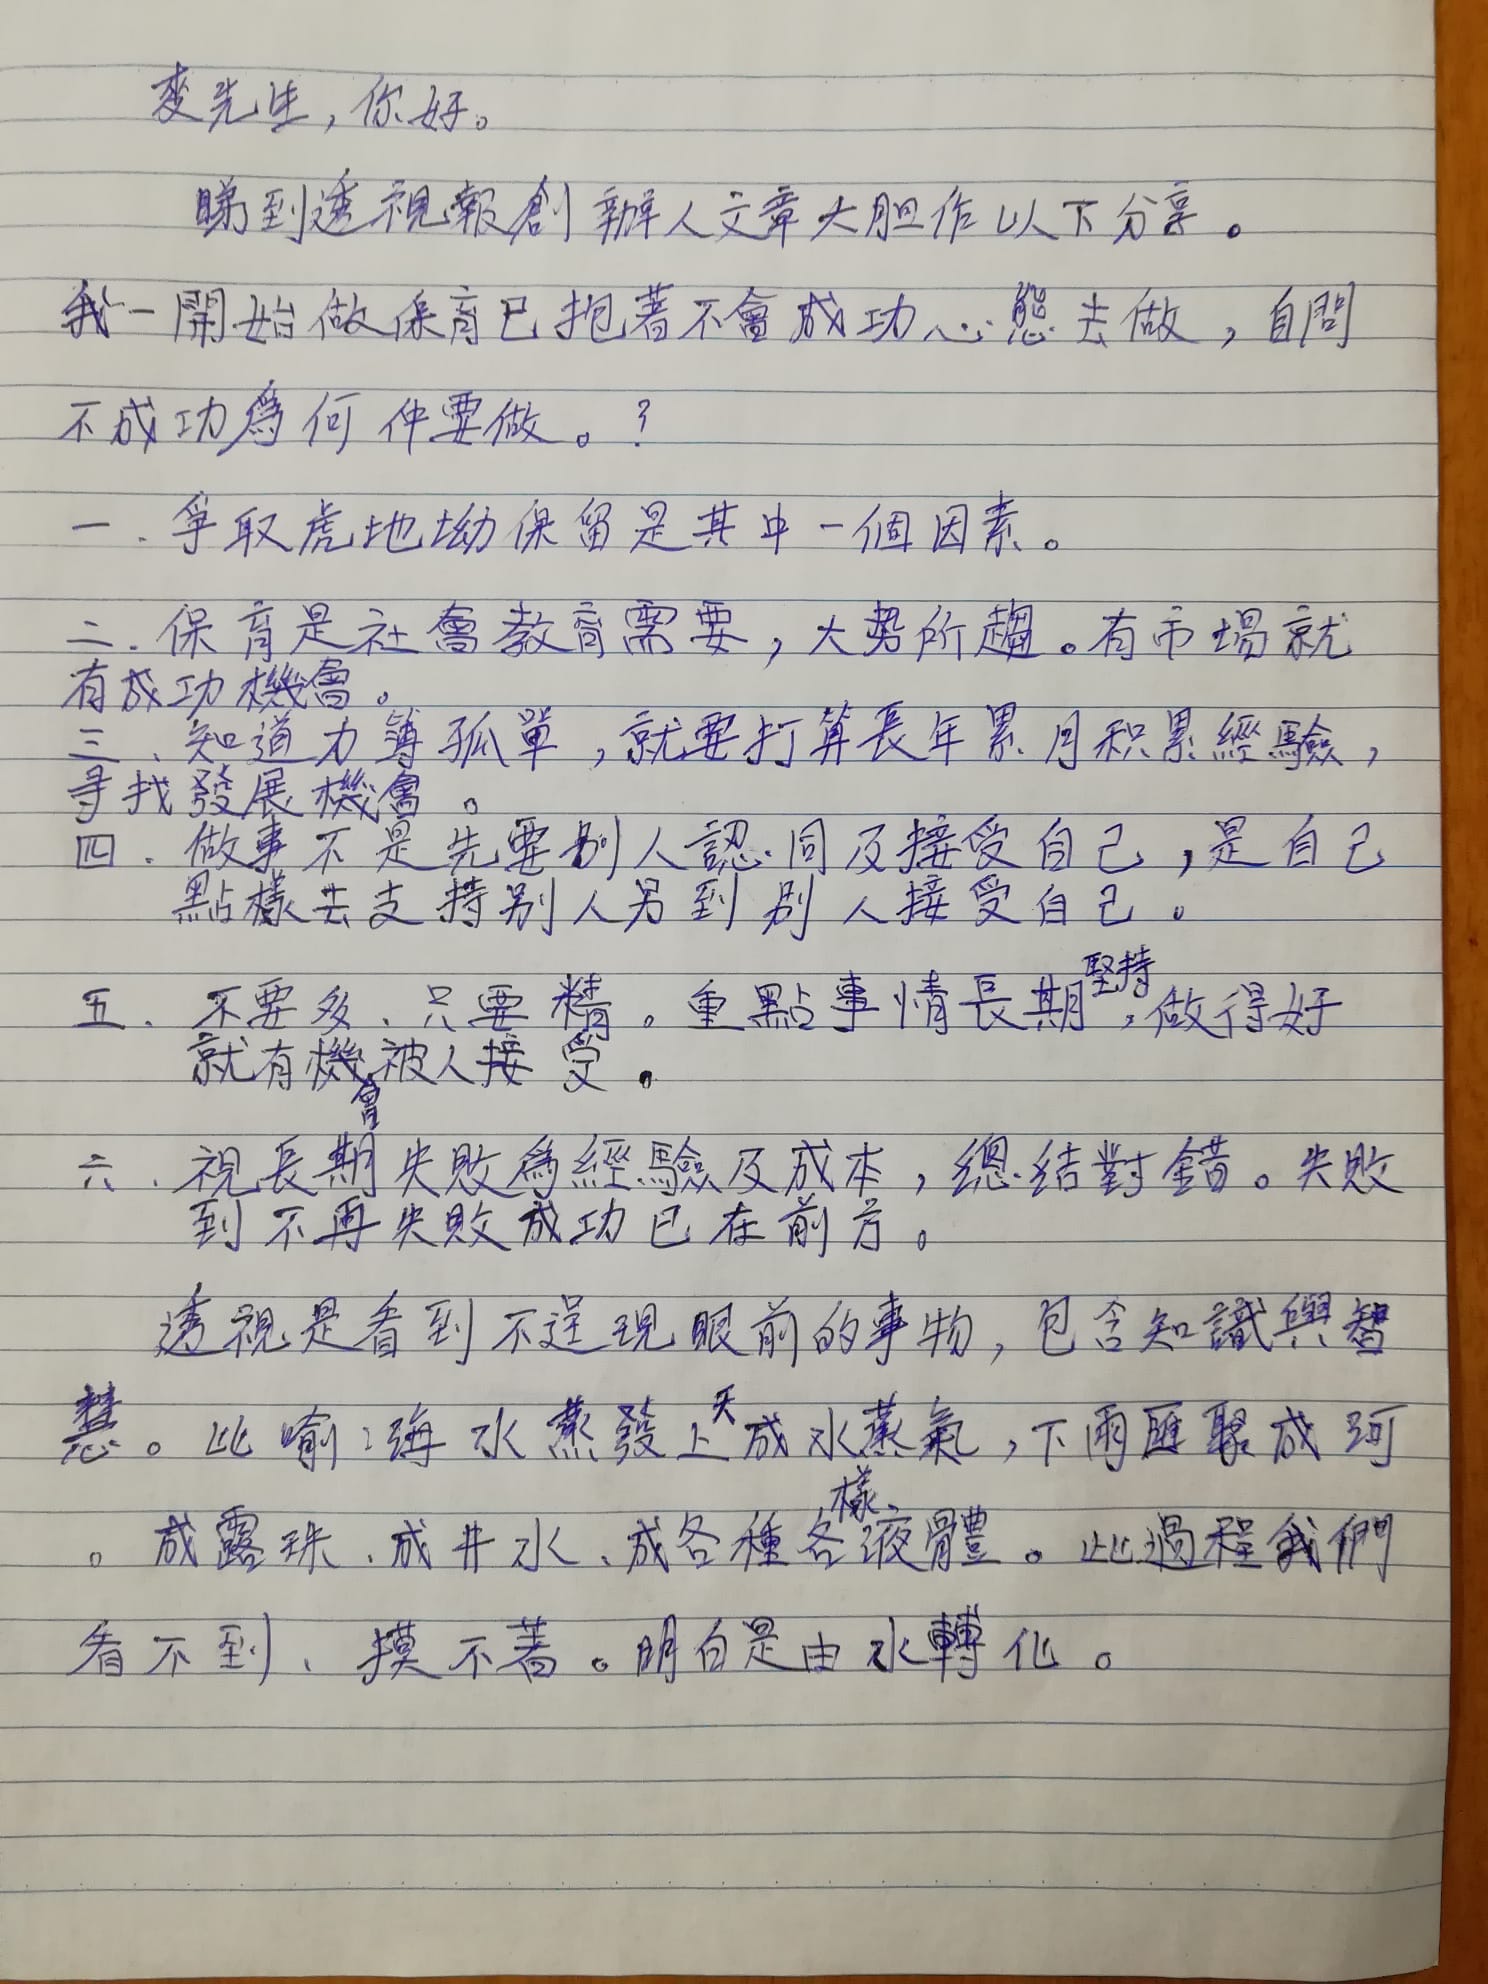 麥先生，你好。
睇到透視報創辦人文章大胆作以下分享。
我一開始做保育已抱著不會成功心態去做，自問
不成功為何仲要做。？
一．爭取虎地坳保留是其中一個因素。
二．保育是社會教育需要，大勢所趨。有市場就
有成功機會。
三．知道力薄孤單，就要打算長年累月积累經驗，
寻找發展機會。
四．做事不是先要别人認同及接受自己，是自己
點樣去支持别人另到别人接受自己。
五．不要多、只要精。重點事情長期堅持，做得好
就有機會被人接受。
六．視長期失敗為經驗及成本，總結對錯。失敗
到不再失敗成功已在前方。
透視是看到不逞現眼前的事物，包含知識與智
慧。比喻：海水蒸發上天成水蒸氣，下雨匯聚成河
。成露珠、成井水、成各種各樣液體。此過程我們
看不到、摸不著。明白是由水轉化。